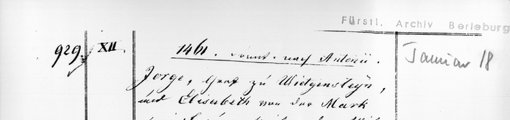 Fürstl. Archiv Berleburg
929. XII. 1461. sonnt. nach Antonii. Januar 18
Jorge, Graf zu Widgensteyn,
und Elisabeth von der Mark